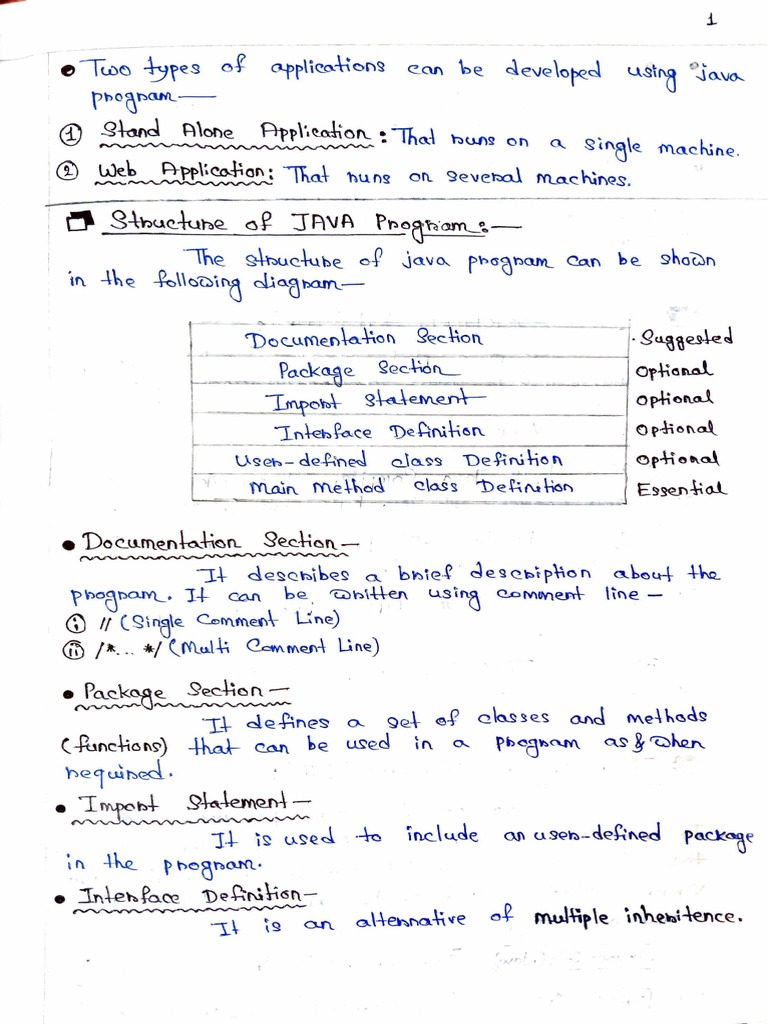 1
• Two types of applications can be developed using java
program—
① Stand Alone Application: That runs on a single machine.
② Web Application: That runs on several machines.
Structure of JAVA Program:—
The structure of java program can be shown
in the following diagram—
Documentation Section Suggested
Package Section Optional
Import Statement Optional
Interface Definition Optional
User-defined class Definition Optional
Main Method class Definition Essential
• Documentation Section—
It describes a brief description about the
program. It can be written using comment line—
ⓘ // (Single Comment Line)
ⓘⓘ /*... */ (Multi Comment Line)
• Package Section—
It defines a set of classes and methods
(functions) that can be used in a program as & when
required.
• Import Statement—
It is used to include an user-defined package
in the program.
• Interface Definition—
It is an alternative of multiple inheritence.